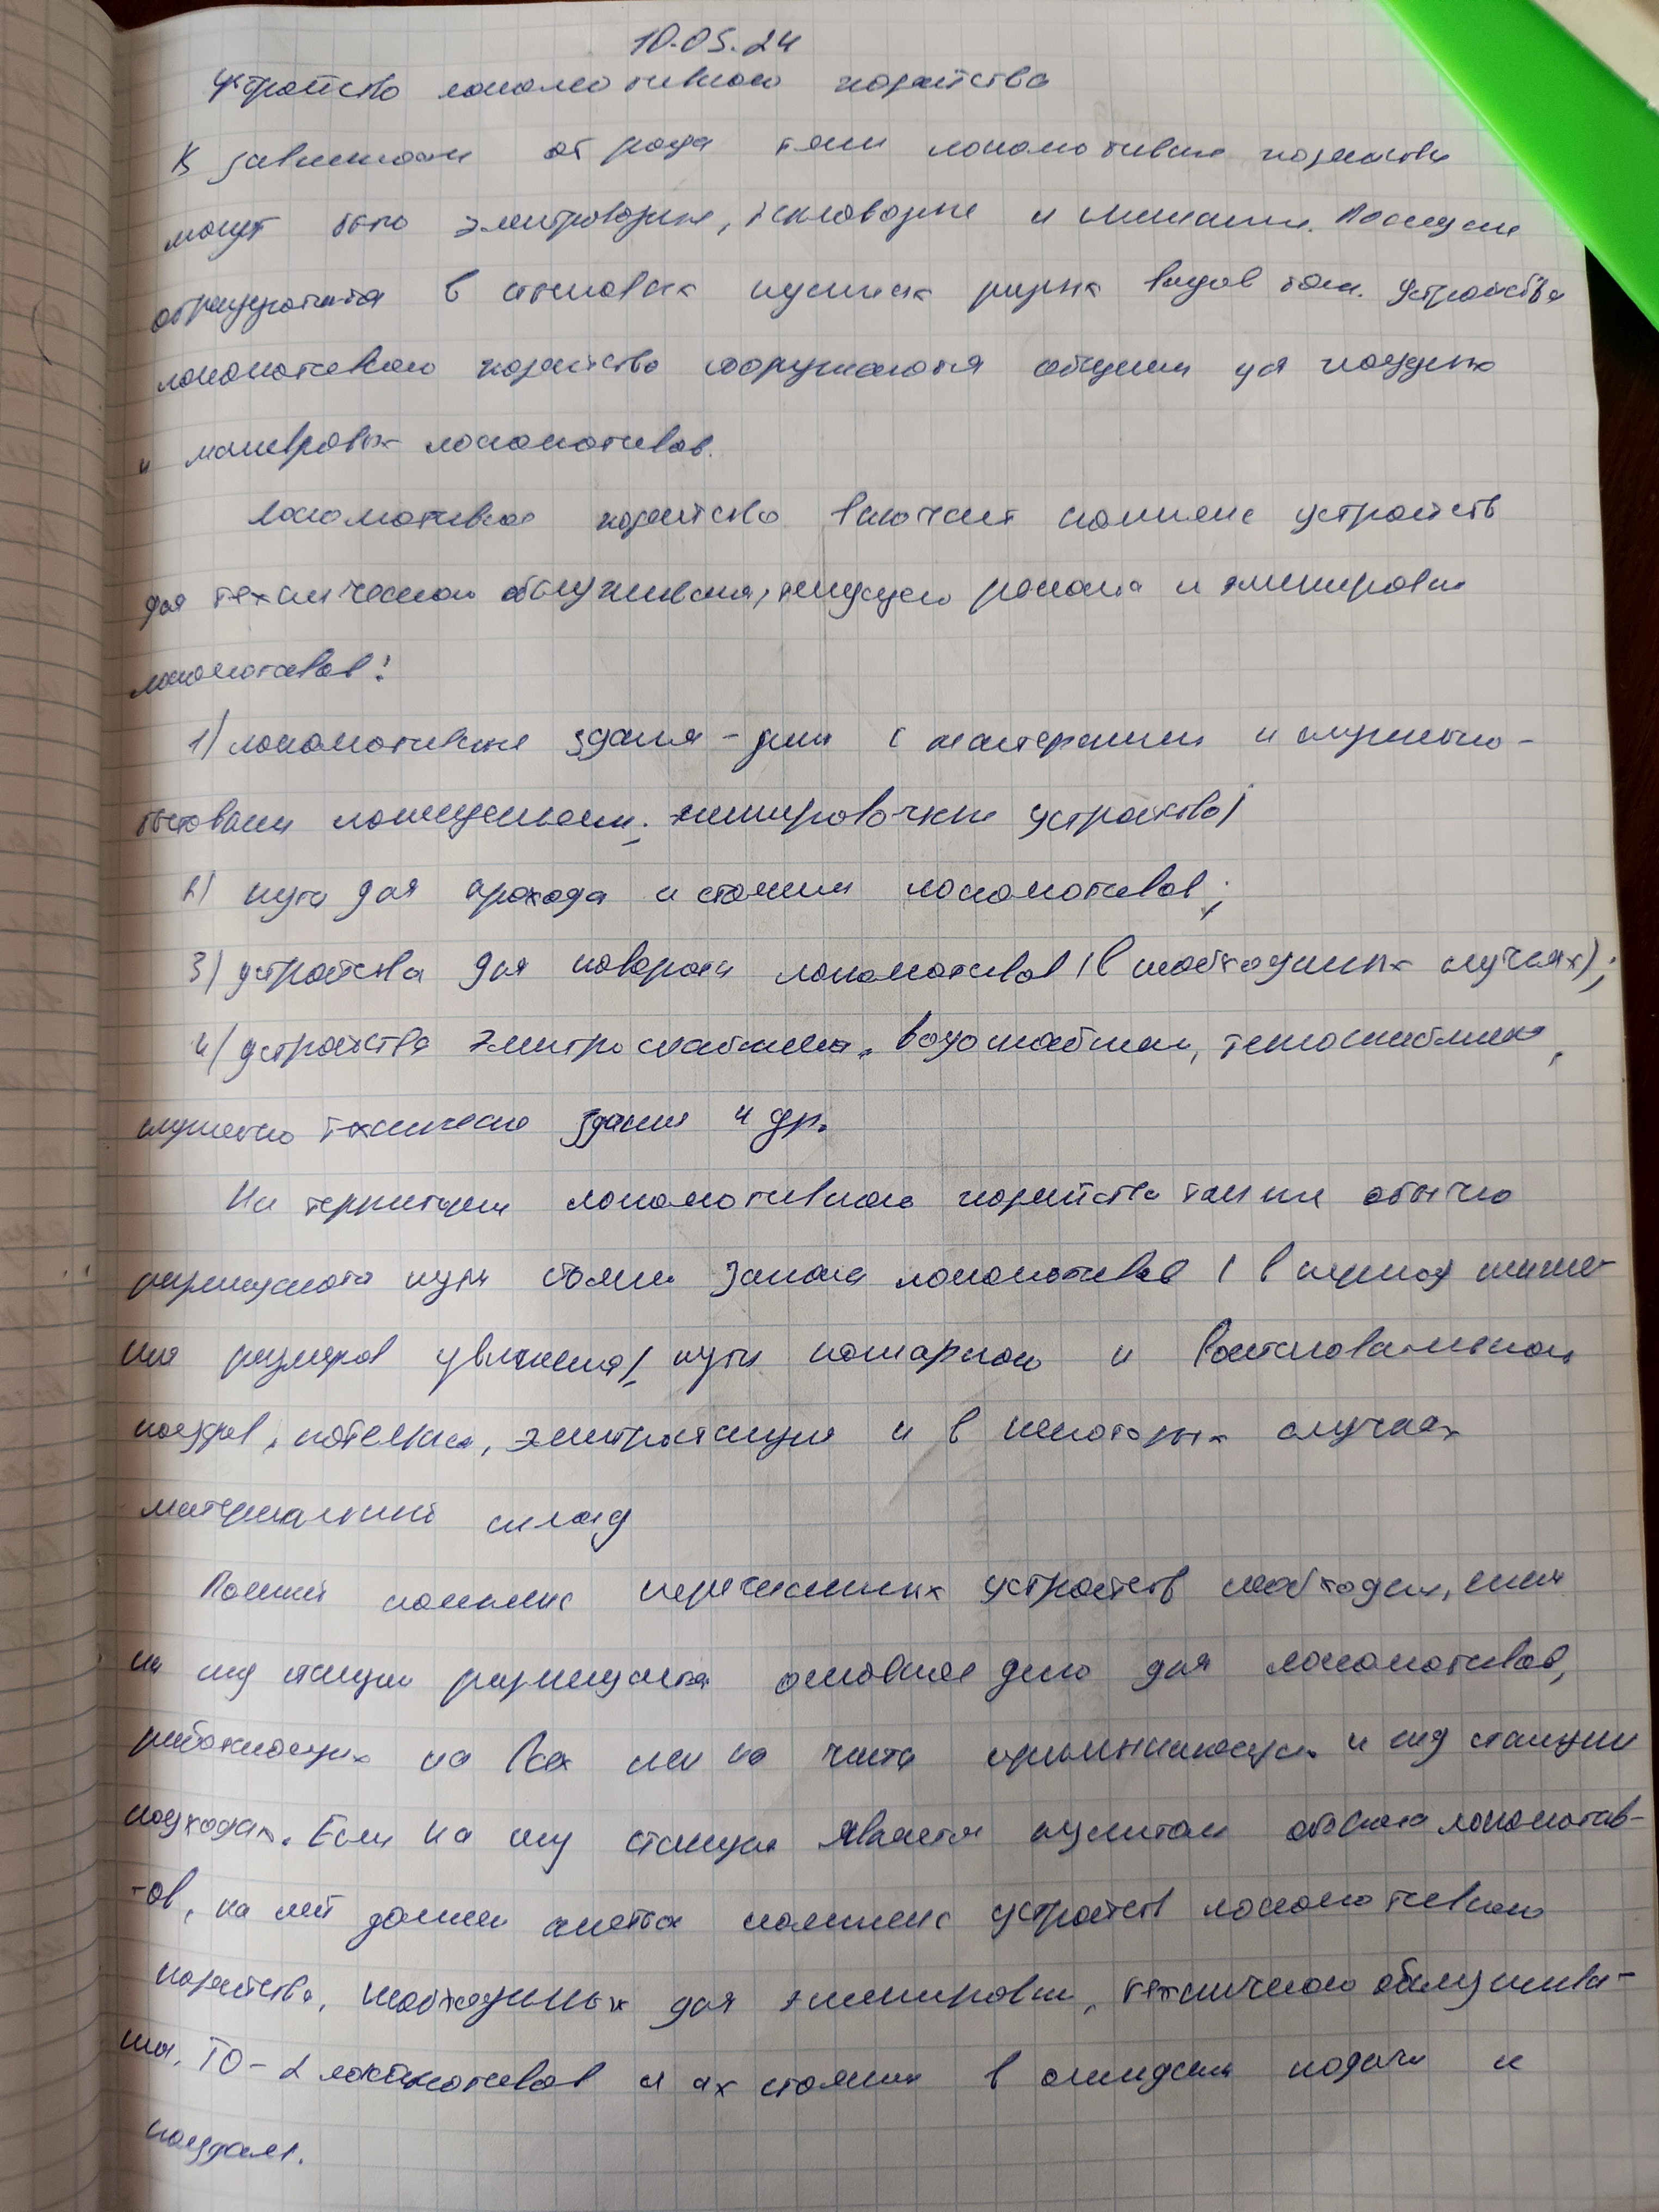 10.05.24
Устройство локомотивного хозяйства
В зависимости от рода тяги локомотивные хозяйства
могут быть электровозные, тепловозные и смешанные. Последние
сооружаются общими для поездных
и маневровых локомотивов.
Локомотивное хозяйство включает комплекс устройств
для технического обслуживания, текущего ремонта и экипировки
локомотивов:
1) локомотивные здания - с мастерскими и служебно-
бытовыми помещениями, экипировочные устройства;
2) пути для прохода и стоянки локомотивов;
3) устройства для поворота локомотивов (в необходимых случаях);
4) устройства электроснабжения, водоснабжения, теплоснабжения,
служебно технические здания и др.
На территории локомотивного хозяйства также обычно
размещаются пути стоянки запаса локомотивов (в период сниже-
ния размеров движения), пути пожарного и восстановительного
поездов, котельная, электростанция и в некоторых случаях
материальный склад
Полный комплекс перечисленных устройств необходим, если
на станции размещается основное депо для локомотивов,
работающих на всех или на части примыкающих к станции
подходах. Если станция является пунктом оборота локомотив-
-ов, на ней должен иметься комплекс устройств локомотивного
хозяйства, необходимых для экипировки, технического обслужива-
ния, ТО-2 локомотивов и их стоянки в ожидании подачи к
поездам.